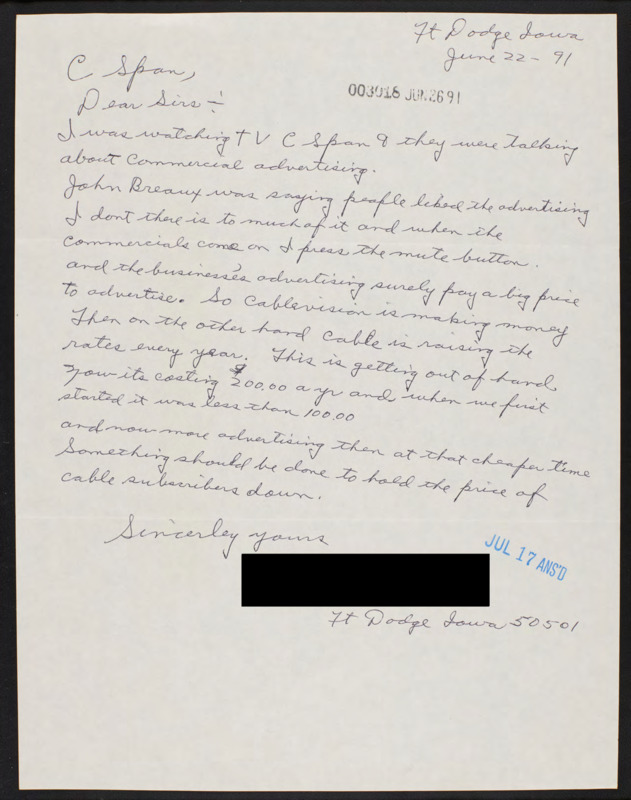 Ft Dodge Iowa
June 22 - 91
C Span,
Dear Sirs ÷
003018 JUN 26 91
I was watching TV C Span & they were talking
about Commercial advertising.
John Breaux was saying peaple liked the advertising
I dont there is to much of it and when the
commercials come on I press the mute button.
and the business's advertising surely pay a big price
to advertise. So Cablevision is making money
Then on the other hand Cable is raising the
rates every year. This is getting out of hand.
Now its costing $200.00 a yr and when we first
started it was less than 100.00
and now more advertising then at that cheaper time
Something should be done to hold the price of
cable subscribers down.
Sincerley yours
JUL 17 ANS'D
Ft Dodge Iowa 50501